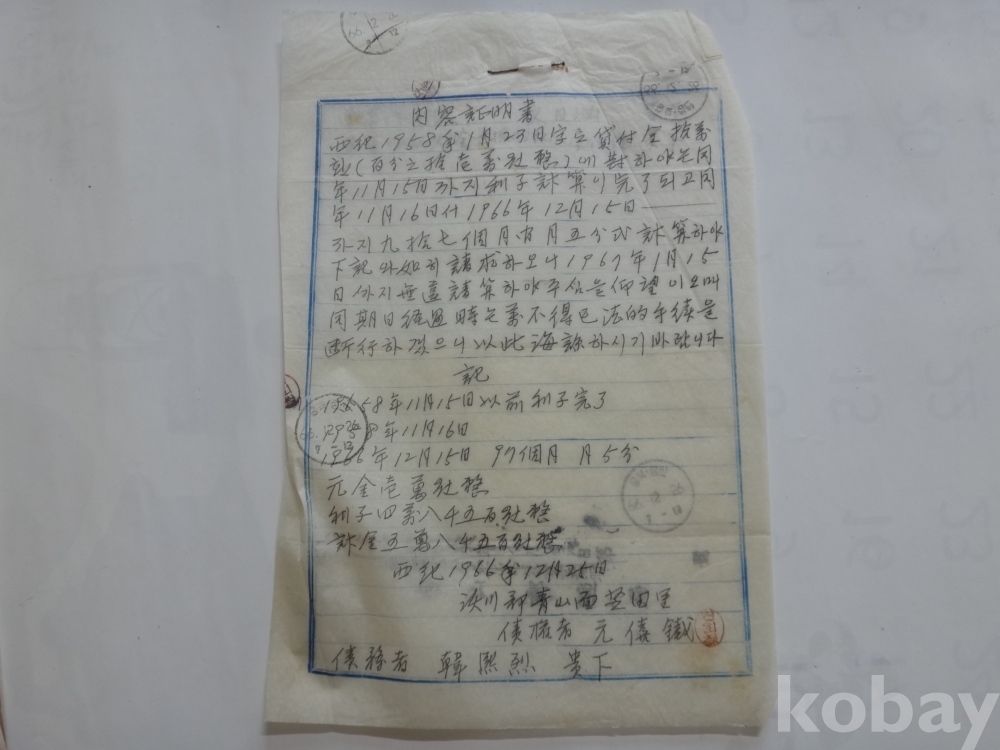 內容証明書
西紀1958年1月23日字로貸付金拾萬
圜(百分之拾壱萬원整)에對하야는同
年11月15日까지利子計算이完了되고同
年11月16日付1966年12月15日
까지九拾七個月間月五分式計算하야
下記와如히請求하오니1967年1月15
日까지無違請算하야주심을仰望이오며
同期日経過時는萬不得已法的手続을
断行하겠으니以此海諒하시기바랍니다
記
1958年11月15日以前利子完了
年11月16日
1966年12月15日 97個月 月5分
元金壱萬원整
利子四萬八千五百원整
計金五萬八千五百원整
西紀1966年12月25日
郡青山面 里
債権者 元 鐵
債務者 韓熙烈 貴下
kobay